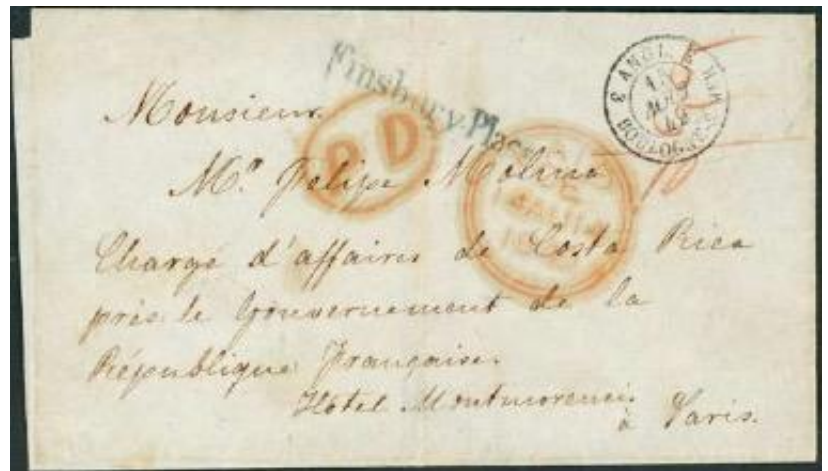 Finsbury-Place
3 ANGL.
BOULOGNE
PD
Monsieur
Mr. Felipe Molina
Chargé d'affaires de Costa Rica
près le Gouvernement de la
République Française.
Hôtel Montmorenci
à Paris.